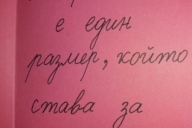 е един
размер, който
става за